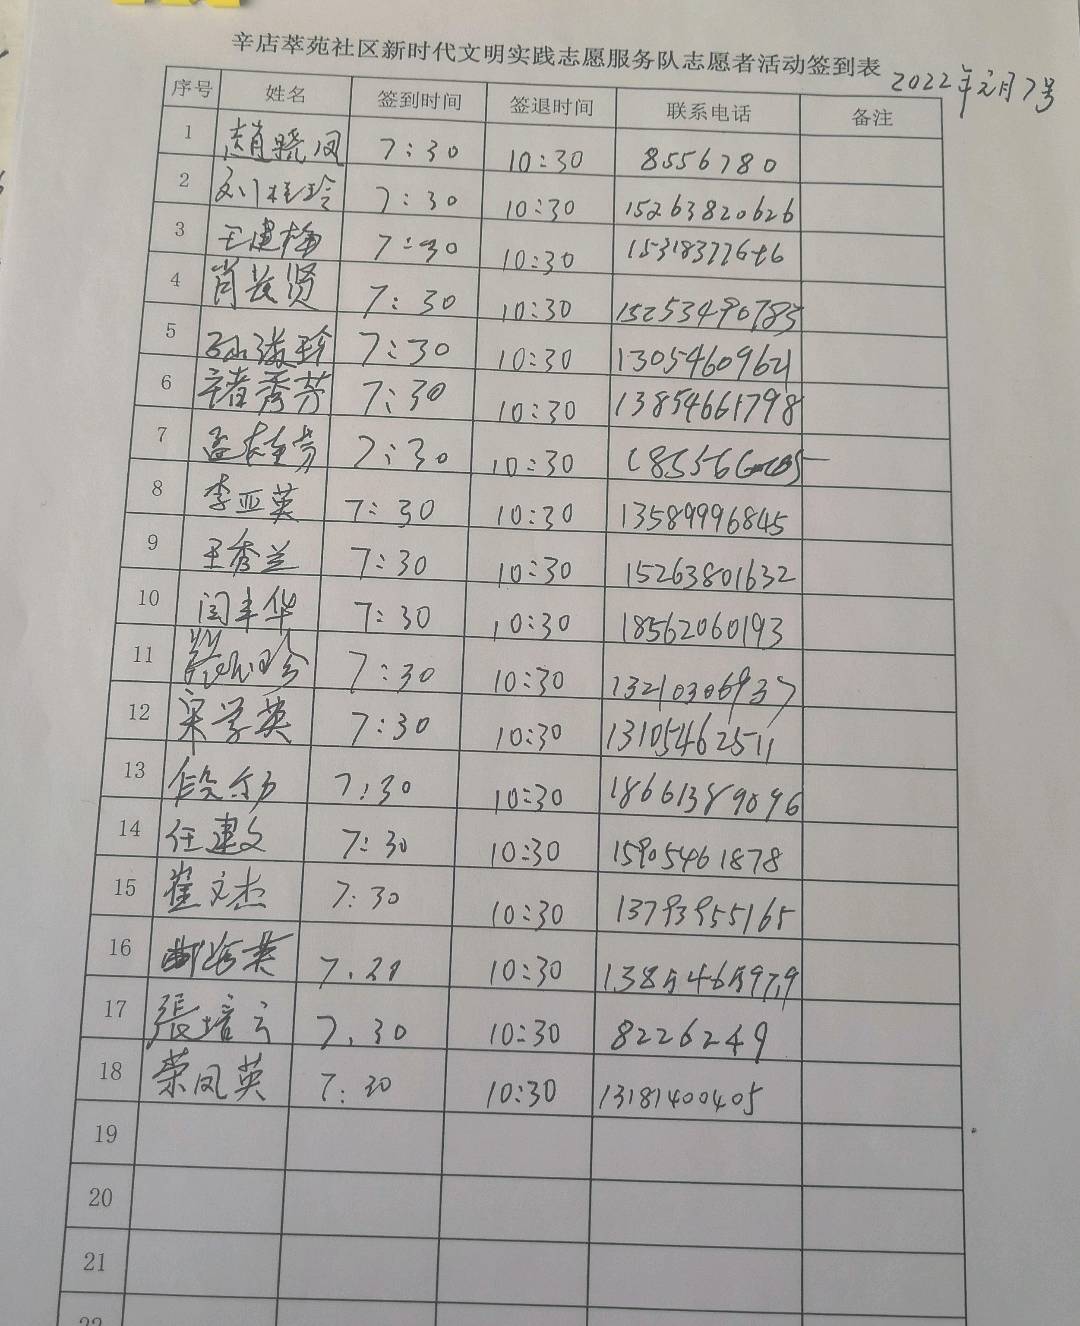 辛店萃苑社区新时代文明实践志愿服务队志愿者活动签到表
2022年元月7号
序号 姓名 签到时间 签退时间 联系电话 备注
1 赵晓凤 7:30 10:30 8556780
2 刘桂玲 7:30 10:30 15263820626
3 王建梅 7:30 10:30
4 肖长贤 7:30 10:30 15253490783
5 孙淑珍 7:30 10:30 13054609621
6 褚秀芳 7:30 10:30 13854661798
7 7:30 10:30
8 李亚英 7:30 10:30 13589996845
9 王秀兰 7:30 10:30 15263801632
10 闫丰华 7:30 10:30 18562060193
11 7:30 10:30 13210306937
12 宋学英 7:30 10:30 13105462511
13 7:30 10:30 18661389096
14 任建文 7:30 10:30 15905461878
15 崔文杰 7:30 10:30 13793955165
16 10:30
17 張培云 7.30 10:30 8226249
18 荣凤英 7:30 10:30 13181400405
19
20
21
22